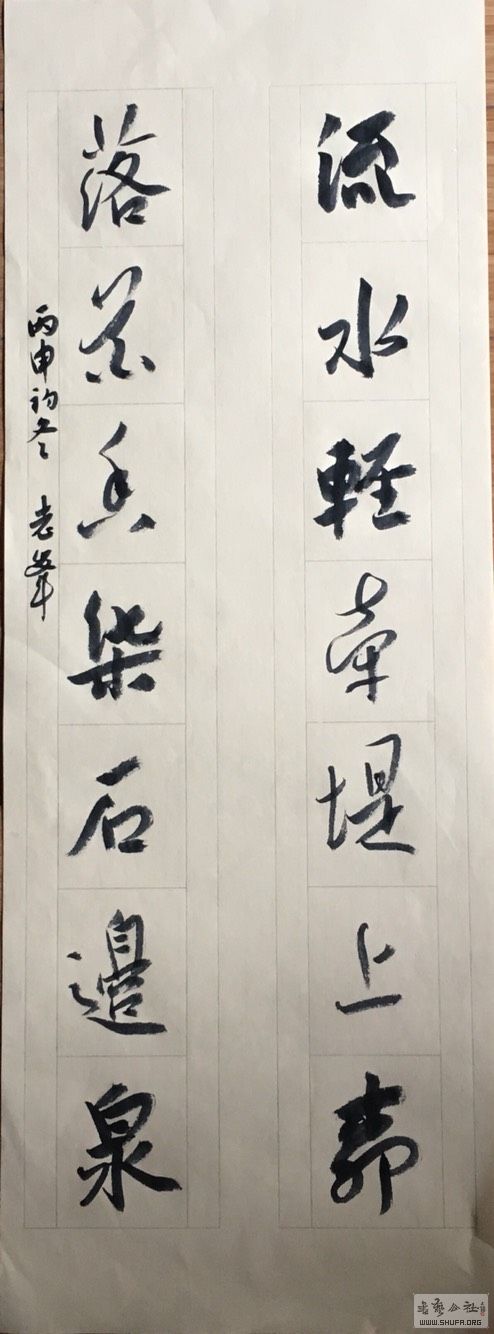 流水輕牽堤上柳
落花香染石邊泉
丙申初冬 老峯
書藝公社
WWW.SHUFA.ORG